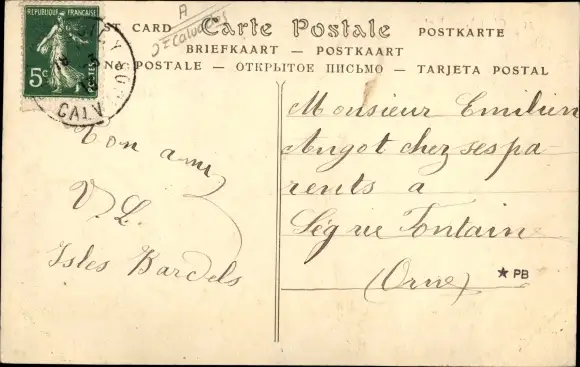 REPUBLIQUE FRANÇAISE
5c
POSTES
CALV
A
ST CARD Carte Postale POSTKARTE
BRIEFKAART — POSTKAART
NO POSTALE — ОТКРЫТОЕ ПИСЬМО — TARJETA POSTAL
Bon ami
V L.
Isles Bardels
Monsieur Emilien
Angot chez ses pa-
rents a
Ségrie Fontain
(Orne)
★ PB